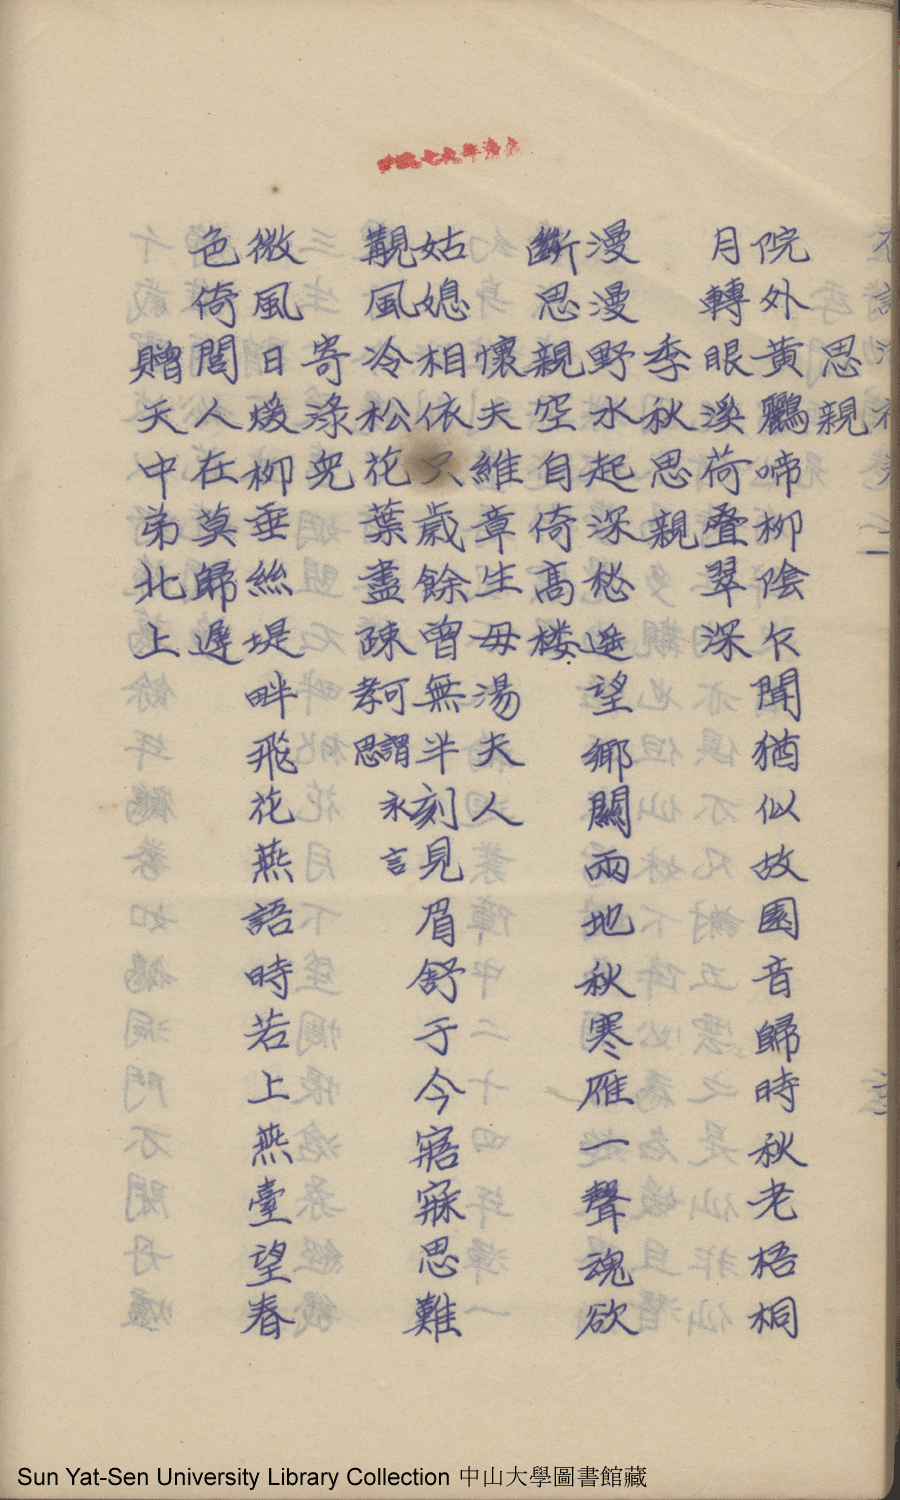 思親
院外黃鸝啼柳陰仄聞猶似故園音歸時秋老梧桐
月轉眼溪荷疊翠深
季秋思親
漫漫野水起深愁遥望鄉關兩地秋寒雁一聲魂欲
斷思親空自倚高楼
懷夫維章生母湯夫人
姑媳相依只歲餘曾無半刻見眉舒于今寤寐思難
覯風冷松花葉盡疎孝思可謂永言
寄淥兒
微風日煖柳垂絲堤畔飛花燕語時若上燕臺望春
色倚閭人在莫歸遲
贈天中弟北上
Sun Yat-Sen University Library Collection 中山大學圖書館藏